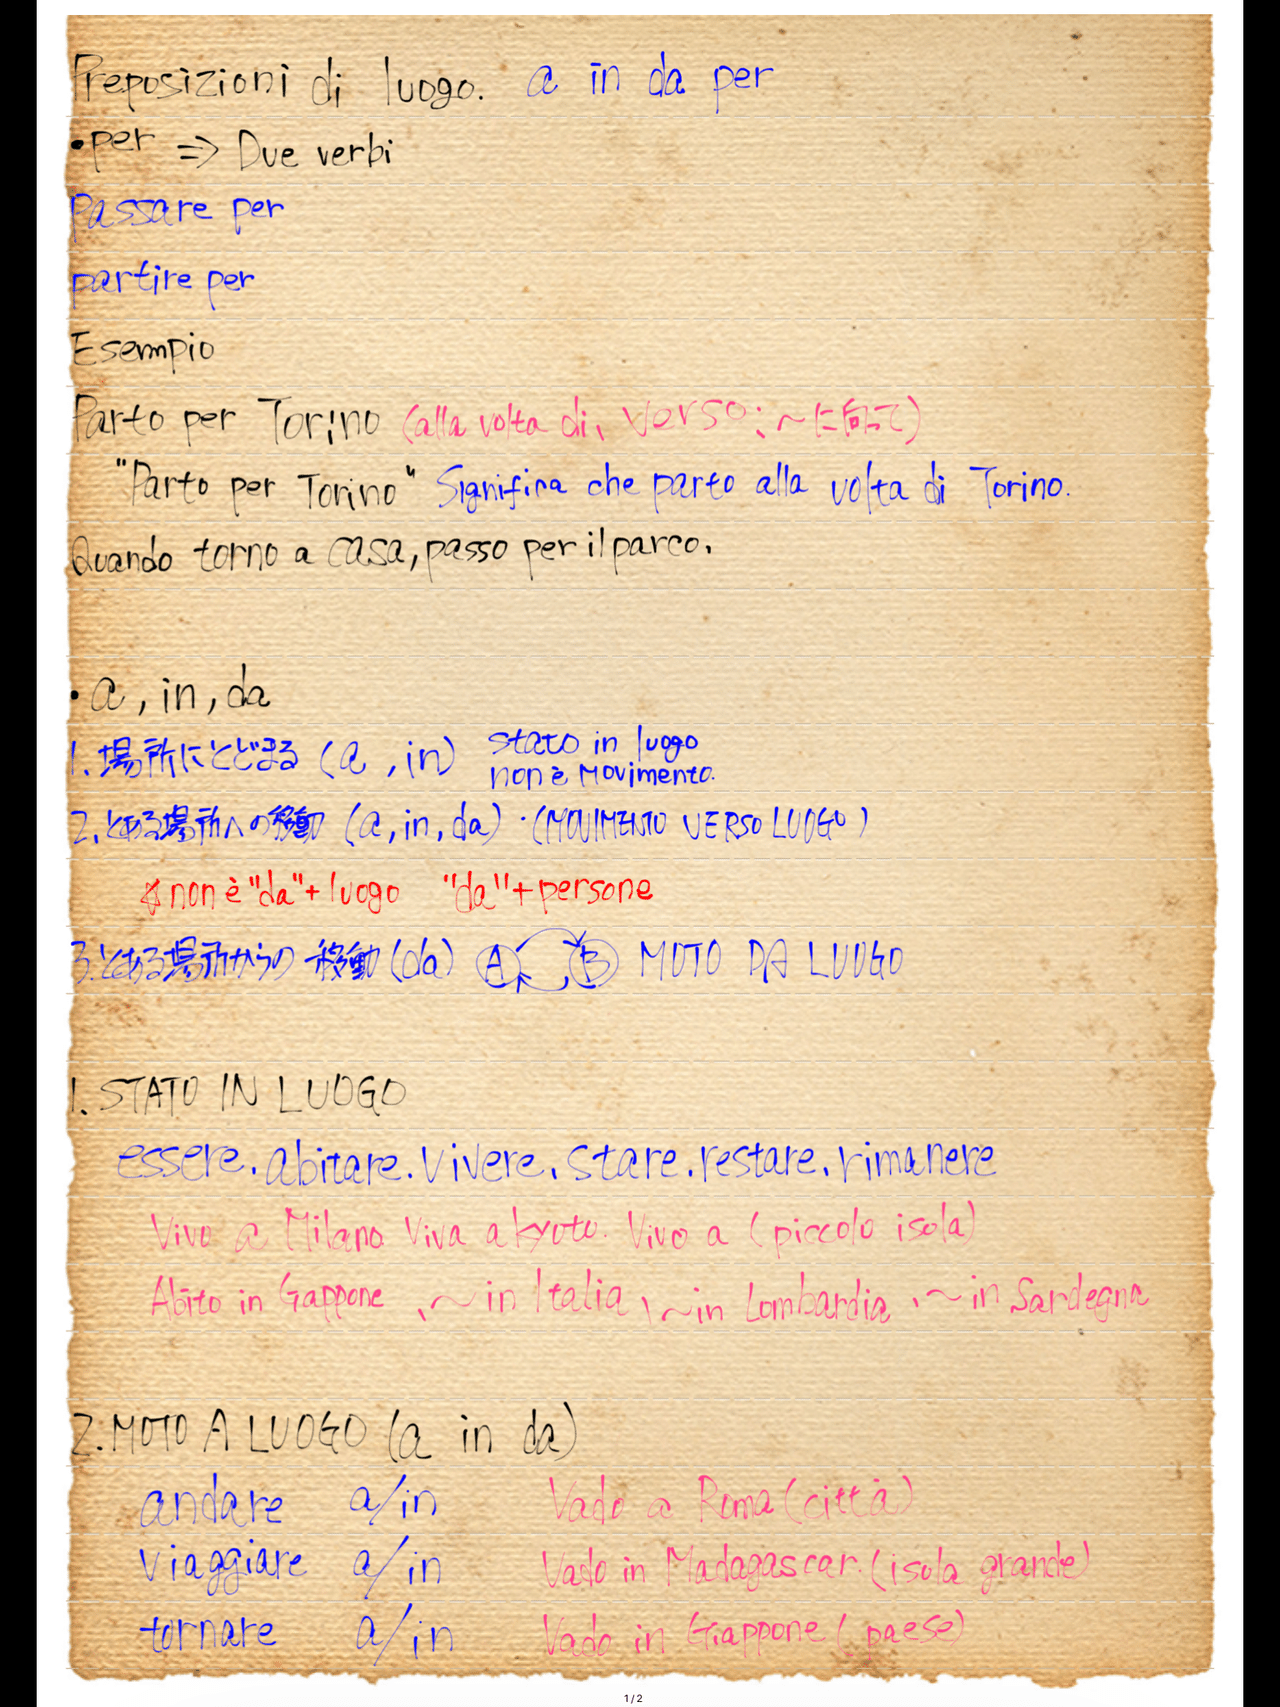 Preposizioni di luogo. a in da per
・per ⇒ Due verbi
Passare per
partire per
Esempio
Parto per Torino (alla volta di、verso: ～に向って)
"Parto per Torino" Significa che parto alla volta di Torino.
Quando torno a casa, passo per il parco.
・a, in, da
1. 場所にとどまる (a, in) stato in luogo
non è Movimento.
2. とある場所への移動 (a, in, da)・(MOVIMENTO VERSO LUOGO)
non è "da"+luogo "da"+persone
3. とある場所からの移動 (da) A B MOTO DA LUOGO
1. STATO IN LUOGO
essere. abitare. vivere. stare. restare. rimanere
Vivo a Milano Viva a kyoto. Vivo a (piccolo isola)
Abito in Gappone、～in Italia、～in Lombardia、～in Sardegna
2. MOTO A LUOGO (a in da)
andare a/in Vado a Roma (città)
viaggiare a/in Vado in Madagascar. (isola grande)
tornare a/in Vado in Giappone (paese)
1/2